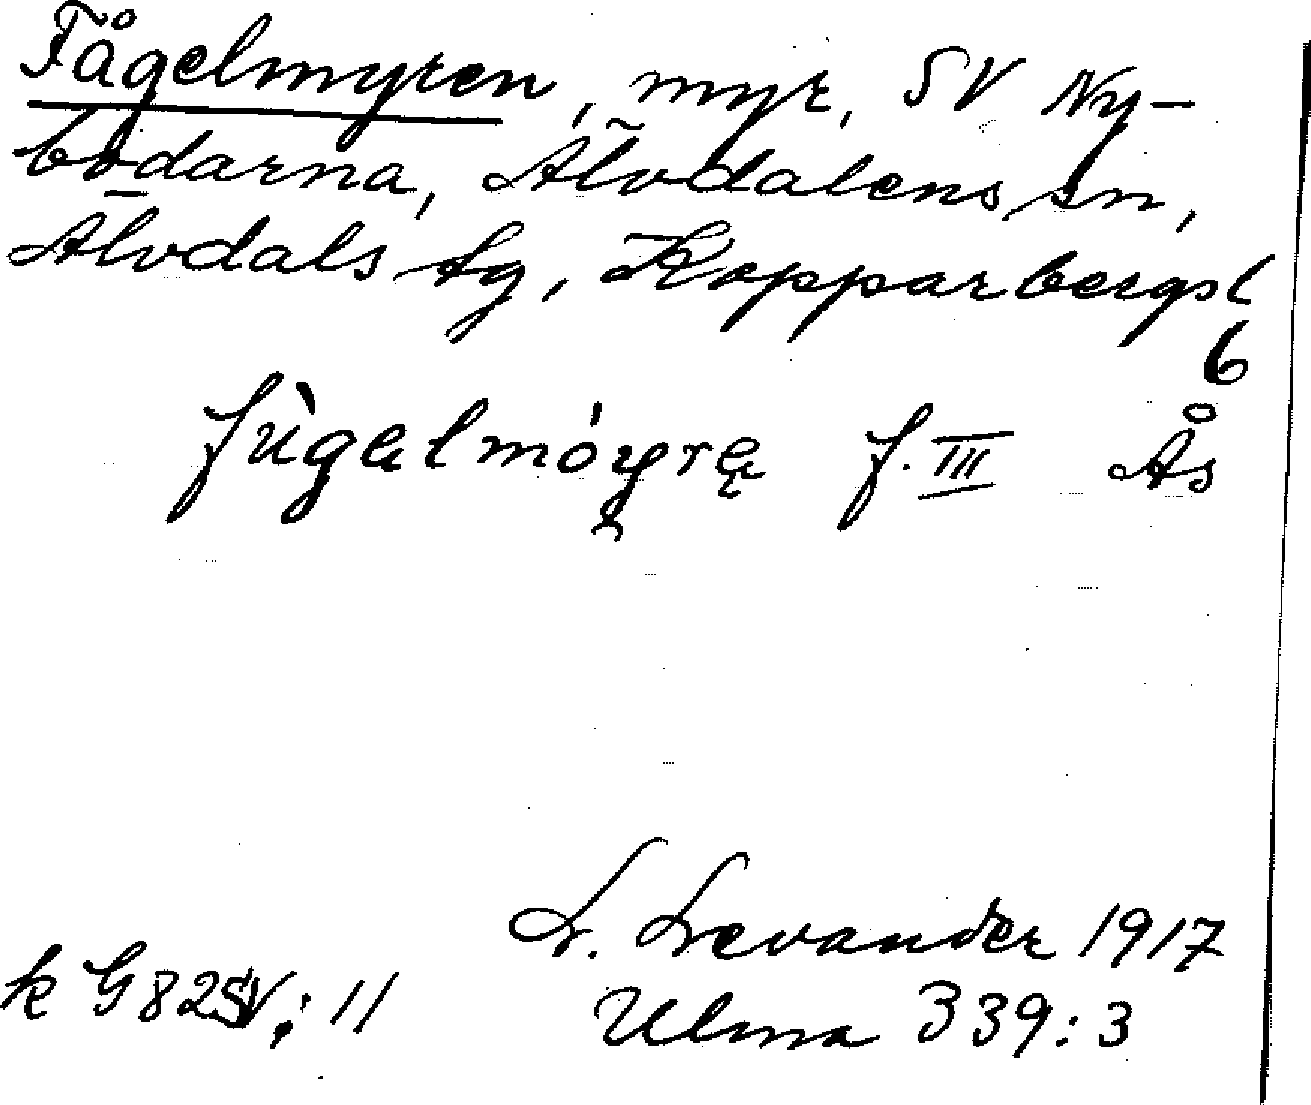 Fågelmyren, myr, SV Ny-
bodarna, Älvdalens sn,
Älvdals tg, Kopparbergs l
6
fùgęlmóyrę f. III Ås
L. Levander 1917
k G 82 SV; 11 Ulma 339:3